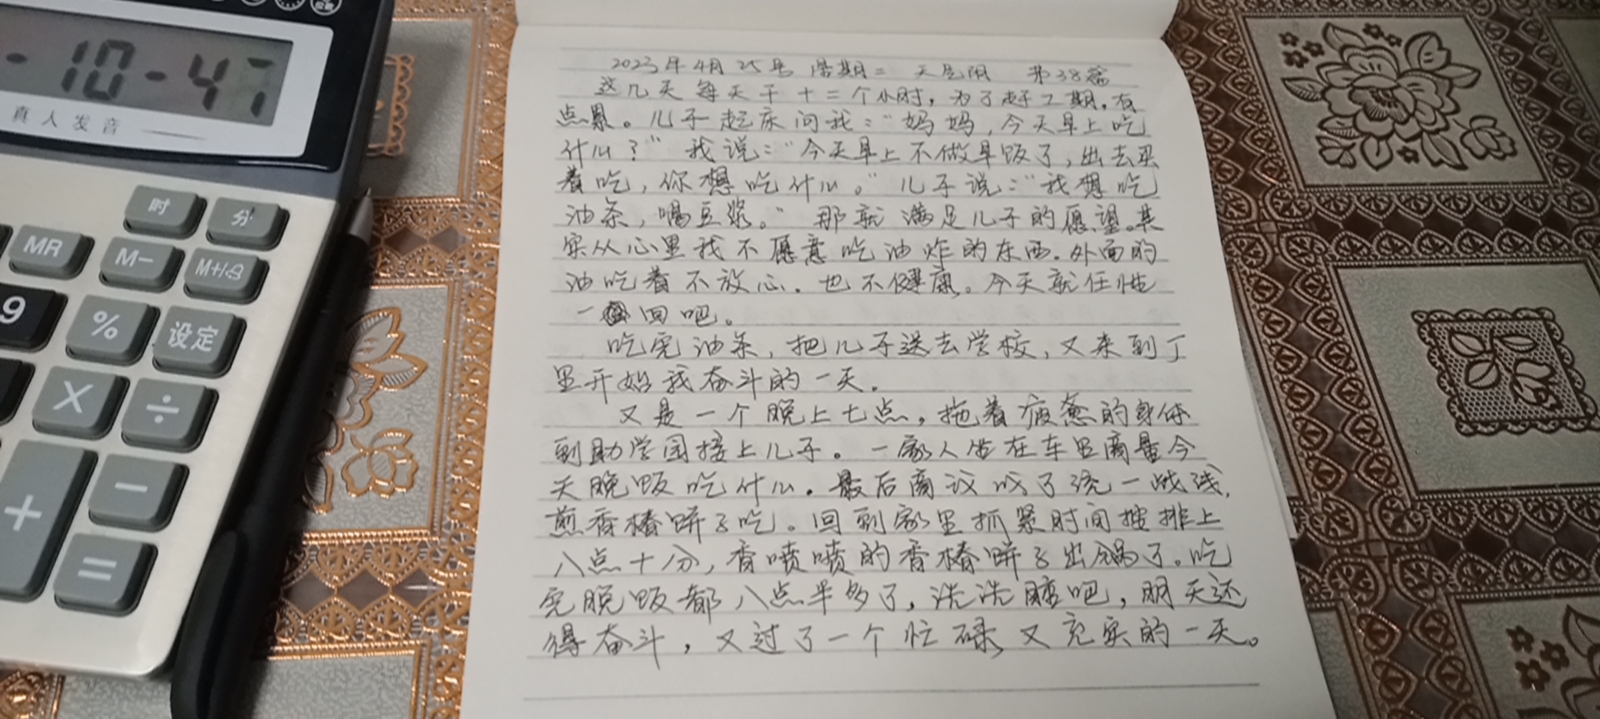 -10-47
真人发音
时
分
MR
M-
M+/
9
%
设定
×
÷
+
-
=
2023年4月25号 星期二 天气阴 第38篇
这几天每天干十二个小时，为了赶工期。有
点累。儿子起床问我：“妈妈，今天早上吃
什么？” 我说：“今天早上不做早饭了，出去买
着吃，你想吃什么。” 儿子说：“我想吃
油条，喝豆浆。” 那就满足儿子的愿望。其
实从心里我不愿意吃油炸的东西。外面的
油吃着不放心。也不健康。今天就任性
一回吧。
吃完油条，把儿子送去学校，又来到厂
里开始我奋斗的一天。
又是一个晚上七点，拖着疲惫的身体
到助学园接上儿子。一家人坐在车里商量今
天晚饭吃什么。最后商议成了统一战线，
煎香椿饼子吃。回到家里抓紧时间安排上
八点十分，香喷喷的香椿饼子出锅了。吃
完晚饭都八点半多了，洗洗睡吧，明天还
得奋斗，又过了一个忙碌又充实的一天。